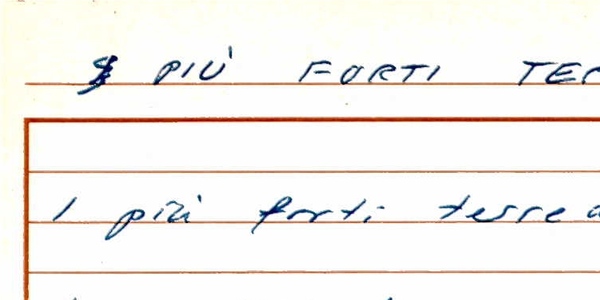 I PIÙ FORTI TER
I più forti terre